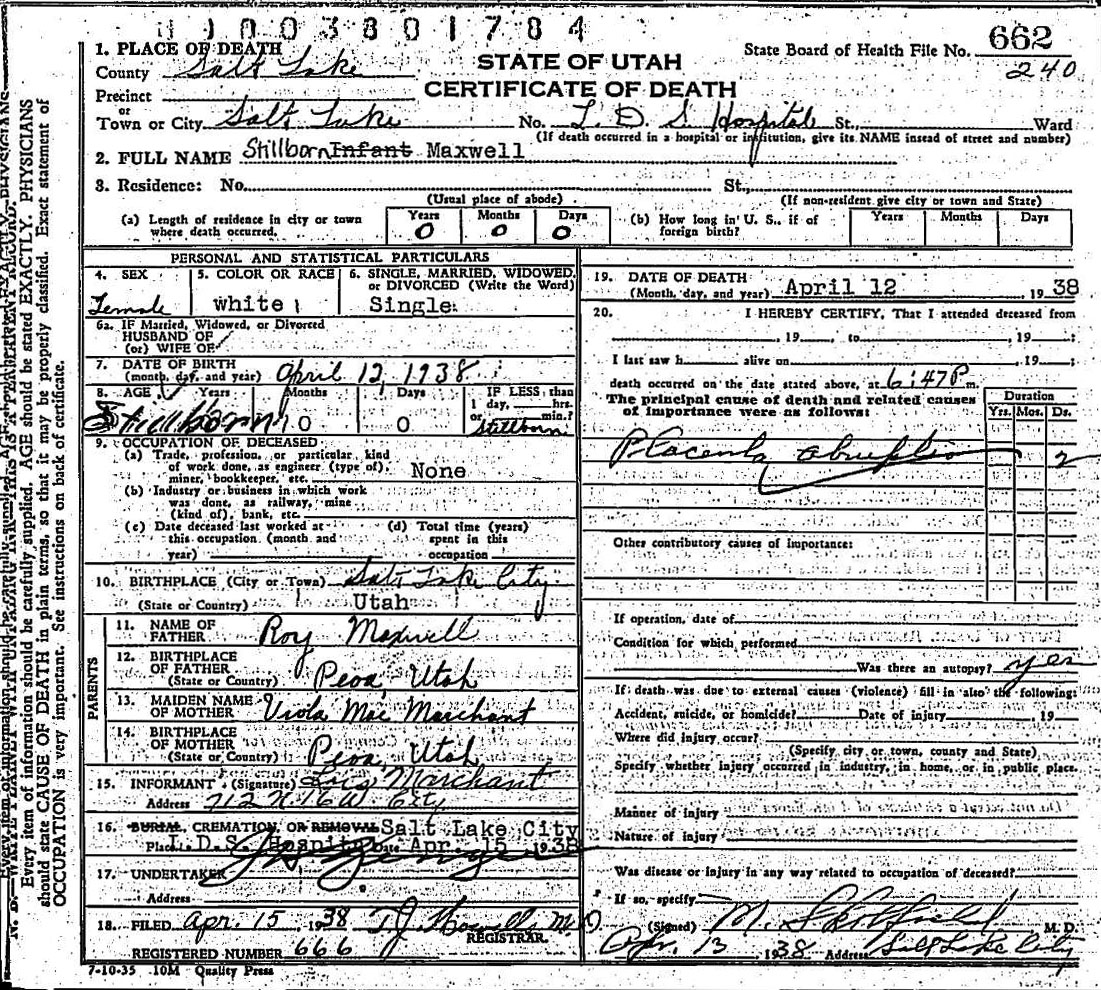 0 1 0 0 3 8 0 1 7 8 4
State Board of Health File No. 662
240
STATE OF UTAH
CERTIFICATE OF DEATH
1. PLACE OF DEATH
County Salt Lake
Precinct
or
Town or City Salt Lake No. L. D. S. Hospital St. Ward
(If death occurred in a hospital or institution, give its NAME instead of street and number)
2. FULL NAME Stillborn Infant Maxwell
3. Residence: No. St.,
(Usual place of abode) (If non-resident give city or town and State)
(a) Length of residence in city or town where death occurred. Years 0 Months 0 Days 0
(b) How long in U. S., if of foreign birth? Years Months Days
PERSONAL AND STATISTICAL PARTICULARS
4. SEX Female
5. COLOR OR RACE white
6. SINGLE, MARRIED, WIDOWED, or DIVORCED (Write the Word) Single
6a. IF Married, Widowed, or Divorced
HUSBAND OF
(or) WIFE OF
7. DATE OF BIRTH
(month, day, and year) April 12, 1938
8. AGE Years Months Days IF LESS than
1 day, hrs.
or min.?
Stillborn 0 0 Stillborn
9. OCCUPATION OF DECEASED
(a) Trade, profession, or particular kind
of work done, as engineer (type of),
miner, bookkeeper, etc. None
(b) Industry or business in which work
was done, as railway, mine
(kind of), bank, etc.
(c) Date deceased last worked at
this occupation (month and
year)
(d) Total time (years)
spent in this
occupation
10. BIRTHPLACE (City or Town) Salt Lake City
(State or Country) Utah
PARENTS
11. NAME OF
FATHER Roy Maxwell
12. BIRTHPLACE
OF FATHER
(State or Country) Peoa, Utah
13. MAIDEN NAME
OF MOTHER Viola Mae Marchant
14. BIRTHPLACE
OF MOTHER
(State or Country) Peoa, Utah
15. INFORMANT (Signature) Marchant
Address 712 N 16 W City
16. BURIAL, CREMATION, OR REMOVAL Salt Lake City
Place L. D. S. Hospital Date Apr. 15 1938
17. UNDERTAKER
Address
18. FILED Apr. 15 1938 T. J. Howell M. D.
REGISTRAR.
REGISTERED NUMBER 666
7-10-35 10M Quality Press
19. DATE OF DEATH
(Month, day, and year) April 12 1938
20. I HEREBY CERTIFY, That I attended deceased from
, 19 , to , 19 ;
I last saw h alive on , 19 ;
death occurred on the date stated above, at 6:47 P m.
The principal cause of death and related causes
of importance were as follows:
Duration
Yrs. Mos. Ds.
Placenta abruptio 2
Other contributory causes of importance:
If operation, date of
Condition for which performed
Was there an autopsy? yes
If death was due to external causes (violence) fill in also the following:
Accident, suicide, or homicide? Date of injury , 19
Where did injury occur?
(Specify city or town, county and State)
Specify whether injury occurred in industry, in home, or in public place.
Manner of injury
Nature of injury
Was disease or injury in any way related to occupation of deceased?
If so, specify
(Signed) M. M. D.
Apr. 13 1938 Address Salt Lake City
Every item of information should be carefully supplied. AGE should be stated EXACTLY. PHYSICIANS
should state CAUSE OF DEATH in plain terms, so that it may be properly classified. Exact statement of
OCCUPATION is very important. See instructions on back of certificate.